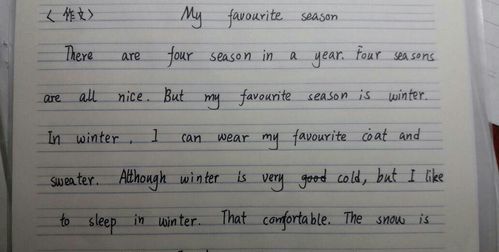 〈作文〉 My favourite season
There are four season in a year. Four seasons
are all nice. But my favourite season is winter.
In winter, I can wear my favourite coat and
sweater. Although winter is very good cold, but I like
to sleep in winter. That comfortable. The snow is